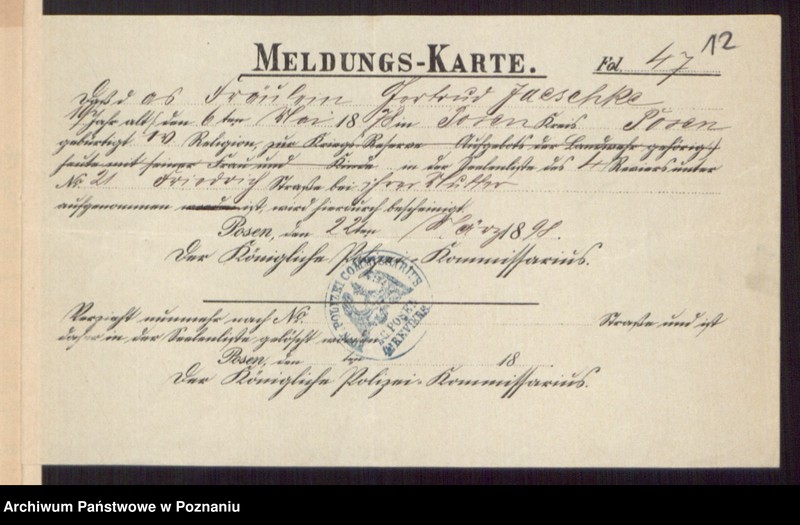 12
MELDUNGS-KARTE.
Fol. 47
Daß d as Fräulein Gertrud Jaeschke
Jahr alt/ den 6ten Mai 18 in Posen Kreis Posen
gebürtigt Religion, zur Kriegs-Reserve Aufgebots der Landwehr gehörig,
heute mit seiner Frau und Kinde in der Seelenliste des 4 Reviers unter
No. 21 Friedrich Straße bei ihrer Mutter
aufgenommen ist, wird hierdurch bescheinigt.
Posen, den 22ten März 189
Der Königliche Polizei-Kommissarius.
POLIZEI COMMISSARIUS
ZU POSEN
REVIERS
Verzieht nunmehr nach No. Straße und ist
daher in der Seelenliste gelöscht worden.
Posen, den ten 18
Der Königliche Polizei-Kommissarius.
Archiwum Państwowe w Poznaniu